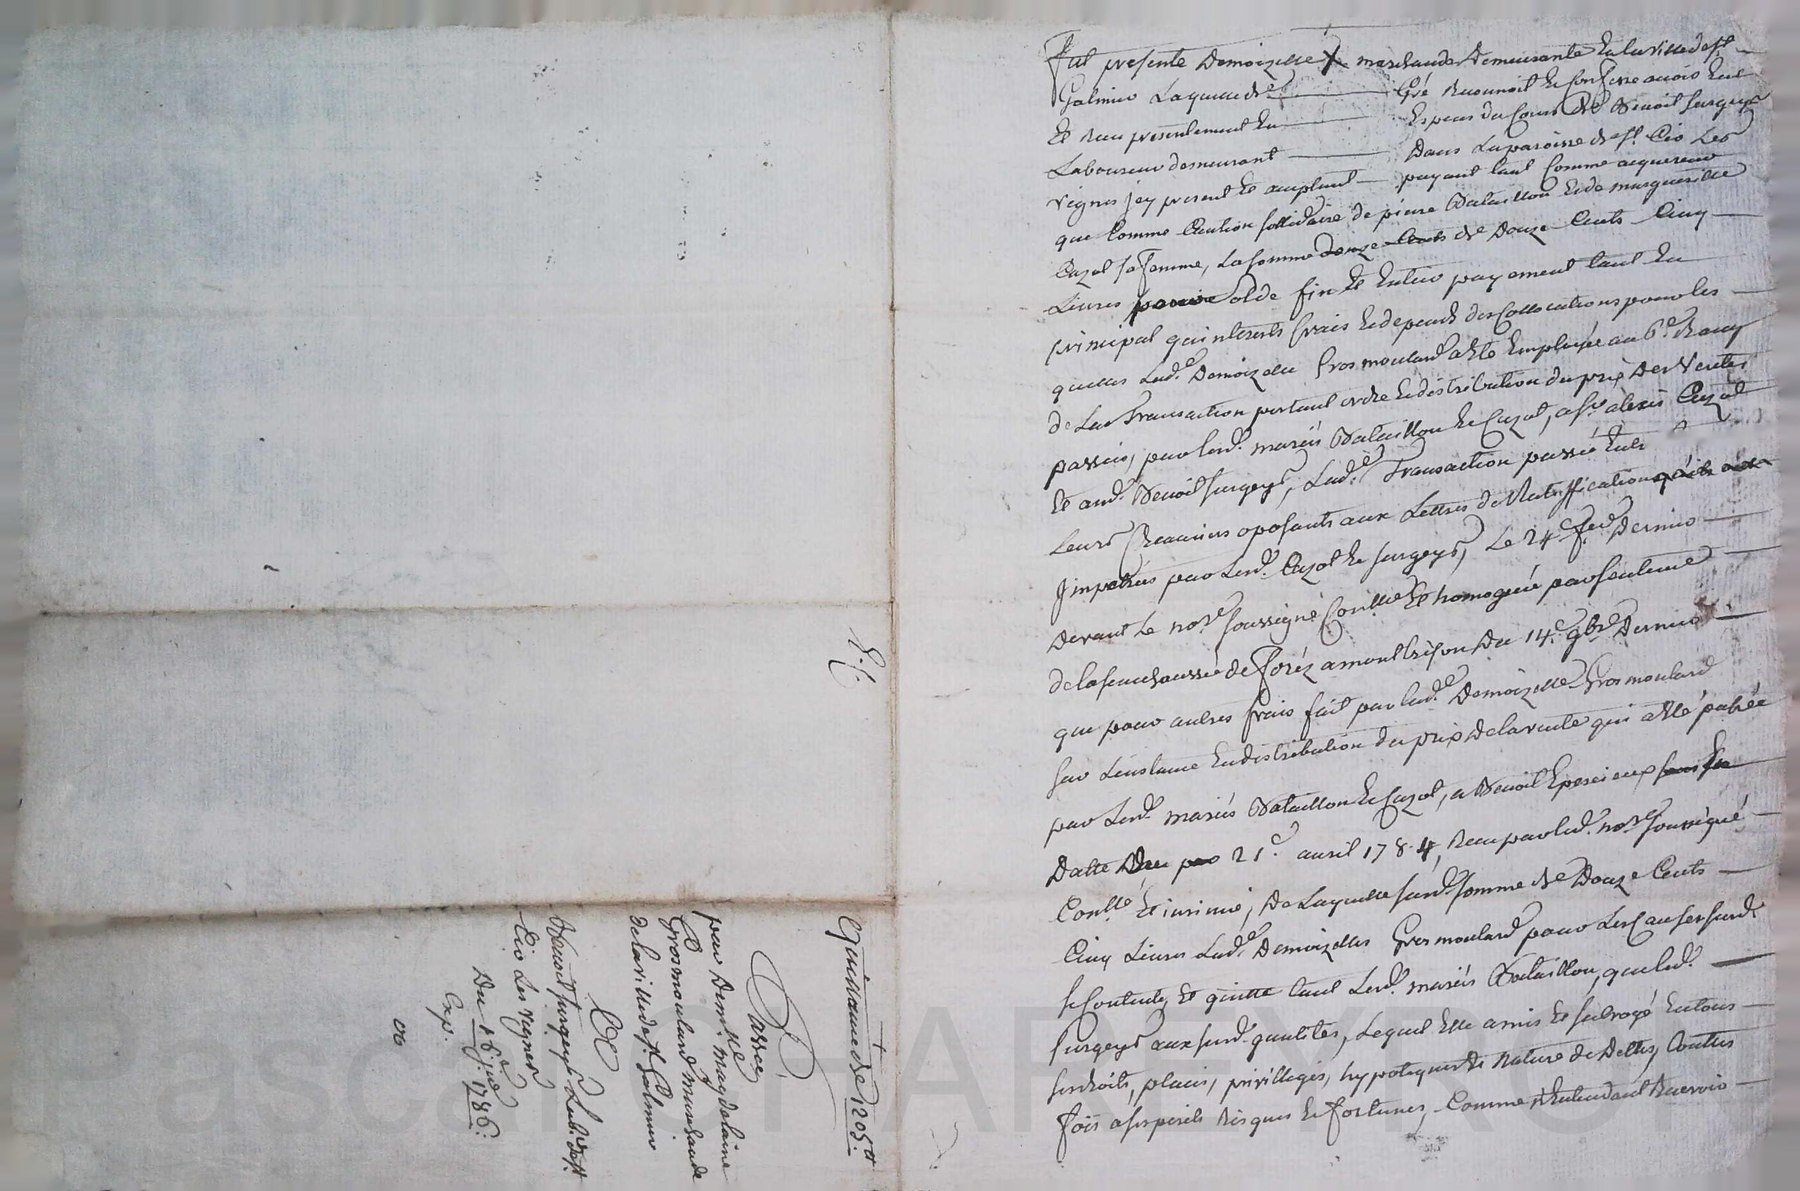 Fut presente Demoizelle X marchande Demeurante En la ville de st
Galmier Laquelle de gré reconnoit Et Confesse avoir Eut
Et Reçu présentement En Especes du Cours de Benoit surgeys
Laboureur demeurant Dans La paroisse de st Cir Les
vignes jcy present Et aceptant payant tant Comme acquereur
que Comme Caution sollidaire de pierre Bataillon Et de marguerite
Cuzol sa femme, La somme de Douze Cents Cinq
Livres pour solde fin Et Entier payement tant En
principal qu'interests frais Et depends des Collocations pour les
quelles Lad.e Demoizelle Grosmoulard a Eté Employée au 6.e Rang
de La Transaction portant ordre Et distribution du prix Des Ventes
passées, par lesd. mariés Bataillon Et Cuzol, a sr alexis Cuzol
Et aud. Benoit surgeys, Lad.e Transaction passée Entre
Leurs Creanciers oposants aux Lettres de Ratiffication
jmpetrées par Lesd. Cuzol Et surgeys, Le 24e fev.r Dernier
Devant Le no.re soussigné Con.lleé Et homoguée par sentence
de la senechaussée de forez a montbrison Du 14.e 9bre Dernier
que pour autres frais fait par Lad.e Demoizelle Grosmoulard
sur L'instance En distribution du prix De la vente qui a Eté passée
par Lesd. mariés Bataillon Et Cuzol, a Benoit Epercieux
Datte Du 21e. avril 1784, Recu par Led. no.re soussigné
Con.lleé Et insinué, De Laquelle susd. somme de Douze Cents
Cinq Livres Lad.e Demoizelle Grosmoulard pour Les Causes susd.
se Contente, Et quitte tant Lesd. mariés Bataillon, que Led.
surgeys aux susd. qualités, Lequel Elle a mis Et subrogé En tous
ses droits, places, privilleges, hypoteques Et Nature de Dettes, touttes
fois a ses perils Risques Et fortunes, Comme N'Entendant Recevoir
E.C
Quittance de 1205 tt
Passée
par Dem.lle magdelaine
Grosmoulard marchande
de la ville de st Galmier
a
Benoit surgeys Lab. de st
Cir Les vignes
Du 16e 1786.
Exp.